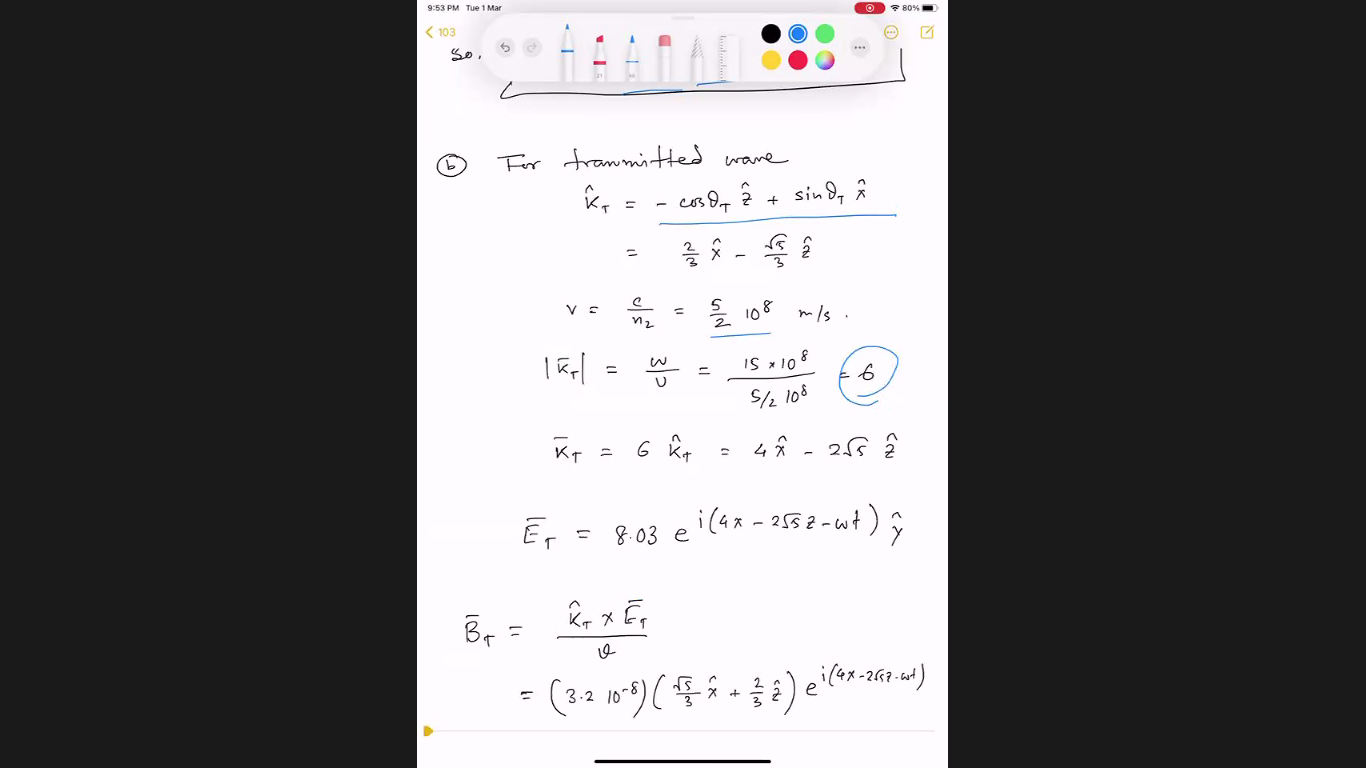 9:53 PM Tue 1 Mar
80%
103
so.
21
ⓑ For tranmitted wave
k̂_T = - cosθ_T ẑ + sinθ_T x̂
= 2/3 x̂ - √5/3 ẑ
v = c/n₂ = 5/2 10⁸ m/s .
|k̄_T| = ω/v = 15×10⁸ / 5/2 10⁸ = 6
k̄_T = 6 k̂_T = 4x̂ - 2√5 ẑ
Ē_T = 8.03 e^{i(4x - 2√5z - ωt)} ŷ
B̄_T = k̂_T × Ē_T / v
= (3.2 10⁻⁸)(√5/3 x̂ + 2/3 ẑ) e^{i(4x - 2√5z - ωt)}